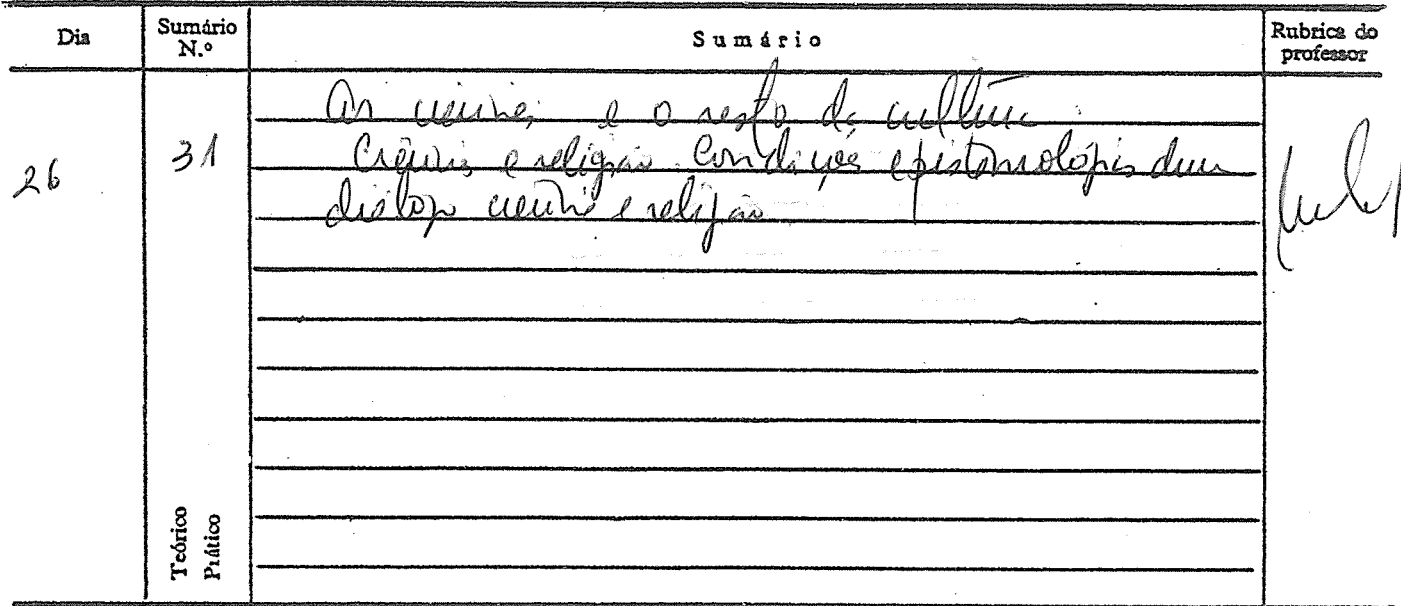 Dia
Sumário N.º
Sumário
Rubrica do professor
26
31
As ciências e o resto da cultura
Ciência e religião. Condições epistemológicas dum
diálogo ciência e religião
Teórico
Prático